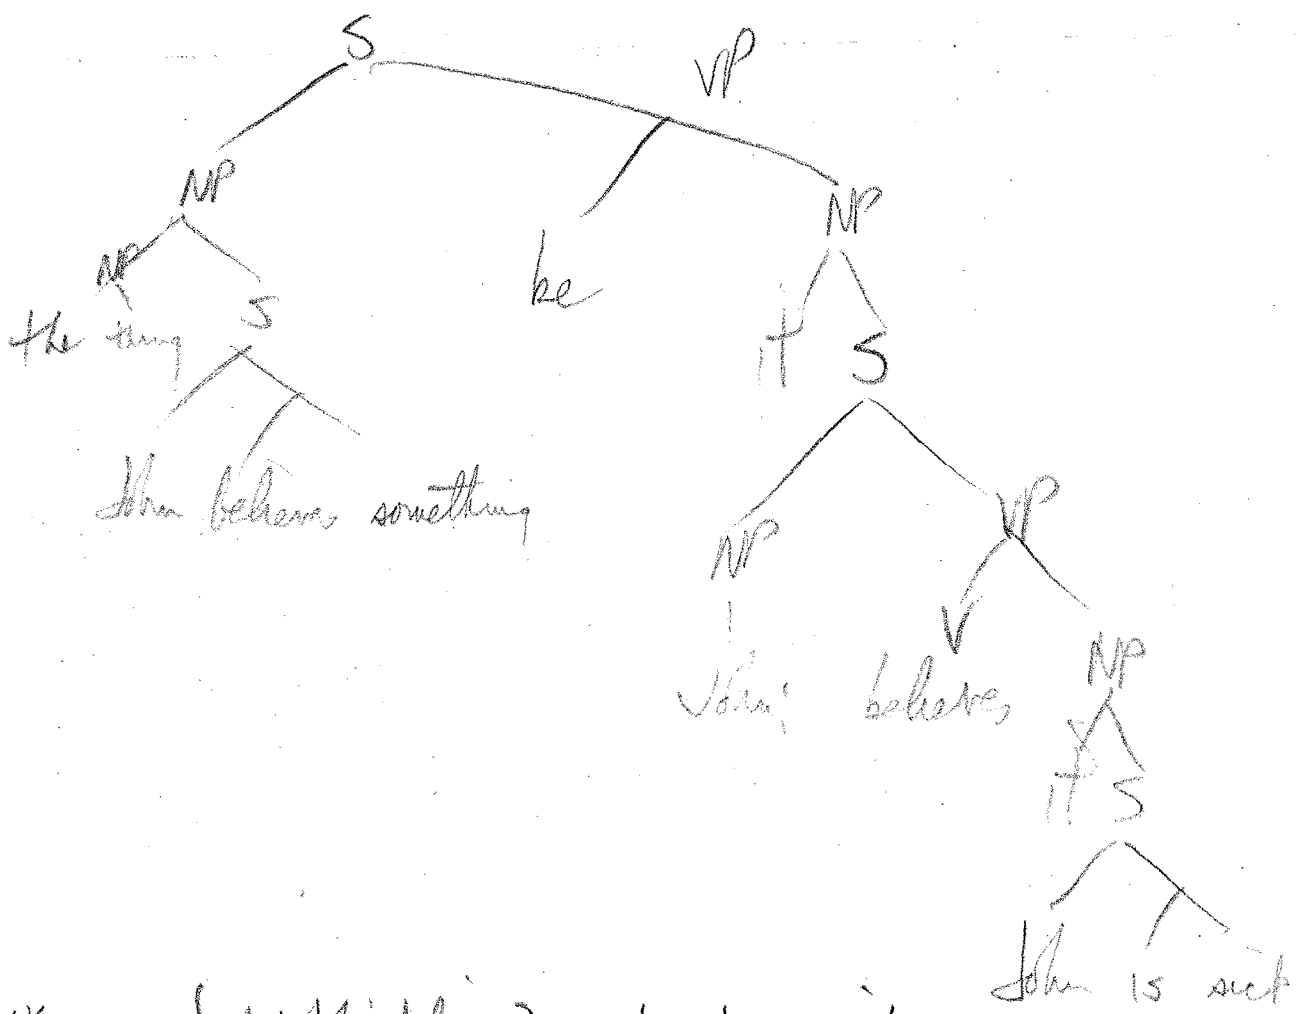 S
VP
NP
NP
NP
be
the thing S
it S
John believes something
NP
VP
V
John believes
NP
it S
John is sick